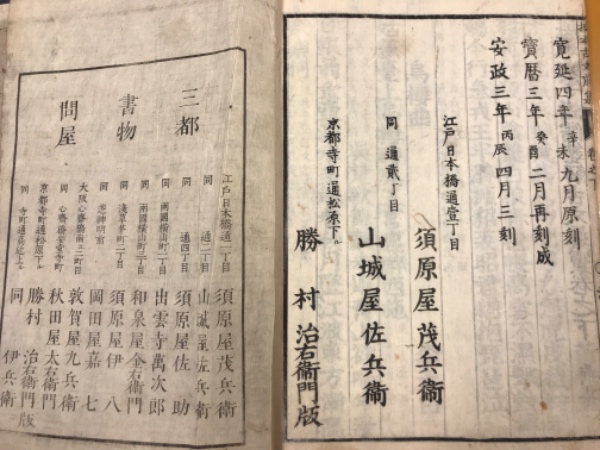 寛延四年辛未九月原刻
寶暦三年癸酉二月再刻成
安政三年丙辰四月三刻
江戸日本橋通壹丁目
須原屋茂兵衞
同 通貳丁目
山城屋佐兵衞
京都寺町通松原下ル
勝村治右衞門版
三都
書物
問屋
江戸日本橋通一丁目 須原屋茂兵衞
同 通二丁目 山城屋佐兵衞
同 通四丁目 須原屋佐助
同 兩國橫山町 出雲寺萬次郎
同 兩國橫山町 和泉屋金右衞門
同 淺草茅町二丁目 須原屋伊八
同 芝神明前 岡田屋嘉七
大阪心齋橋 敦賀屋九兵衞
同 心齋橋安堂寺町 秋田屋太右衞門
京都寺町通松原下ル 勝村治右衞門版
同 寺町通 同 伊兵衞